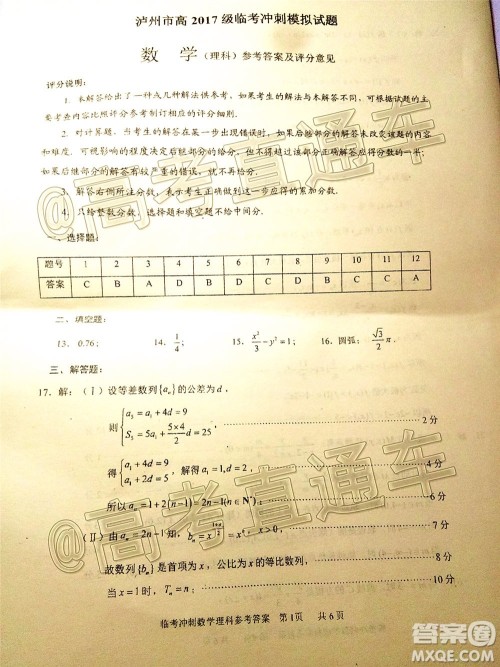 泸州市高 2017 级临考冲刺模拟试题
数 学（理科）参考答案及评分意见
评分说明：
1．本解答给出了一种或几种解法供参考，如果考生的解法与本解答不同，可根据试题的主
要考查内容比照评分参考制订相应的评分细则．
2．对计算题，当考生的解答在某一步出现错误时，如果后继部分的解答未改变该题的内容
和难度，可视影响的程度决定后继部分的给分，但不得超过该部分正确解答应得分数的一半；
如果后继部分的解答有较严重的错误，就不再给分．
3．解答右侧所注分数，表示考生正确做到这一步应得的累加分数．
4．只给整数分数，选择题和填空题不给中间分．
一、选择题：
题号 1 2 3 4 5 6 7 8 9 10 11 12
答案 C B A D B C A
二、填空题：
13．0.76； 14．1/4； 15．x²/3－y²＝1； 16．圆弧；√3/2 π
三、解答题：
17．解：（Ⅰ）设等差数列{aₙ}的公差为 d，
则{a₅＝a₁＋4d＝9
S₅＝5a₁＋(5×4)/2 d＝25， 2 分
得{a₁＋4d＝9
a₁＋2d＝5，解得 a₁＝1,d＝2， 4 分
所以 aₙ＝1＋2(n－1)＝2n－1(n∈N*) 6 分
（Ⅱ）由 aₙ＝2n－1 知， 8 分
故数列{bₙ}是首项为 x，公比为 x 的等比数列，
当 x＝1 时，Tₙ＝n； 10 分
临考冲刺数学理科参考答案 第 1 页 共 6 页
@高考直通车
@高考直通车
答案圈
MXQE.COM